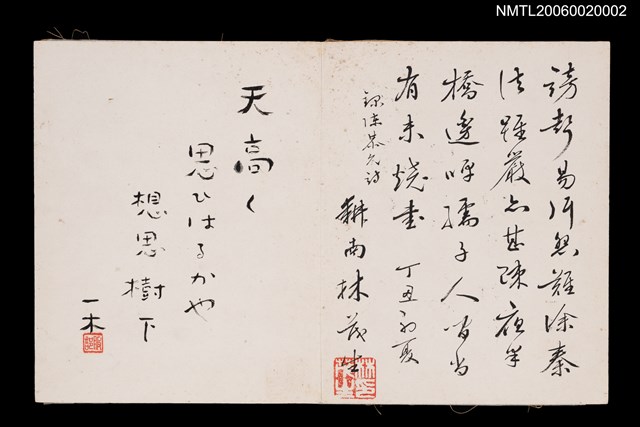 NMTL20060020002
謗聲易弭怨難除秦
法雖嚴亦甚疎夜半
橋邊呼孺子人間尚
有未燒書 丁丑初夏
録陳恭尹詩
耕南林茂生
天高く
思ひはるかや
想思樹下
一木